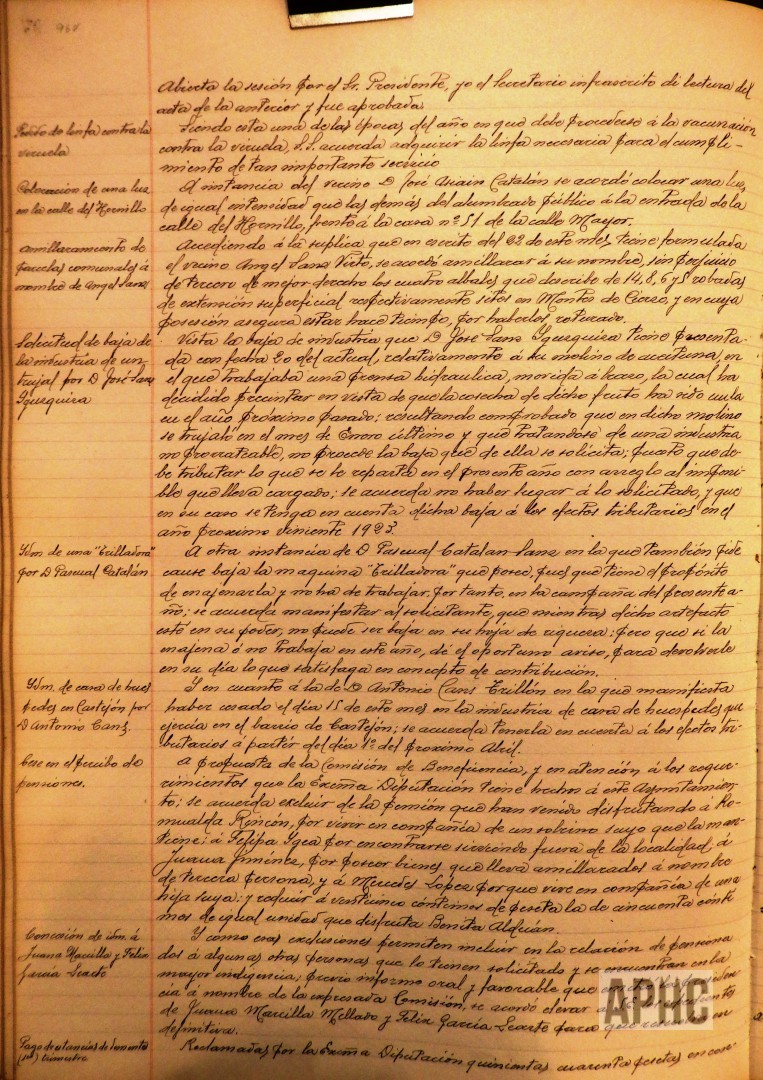 Abierta la sesión por el Sr. Presidente, yo el Secretario infrascrito di lectura del
acta de la anterior y fue aprobada.
Pedido de linfa contra la
viruela
Siendo esta una de las épocas del año en que debe procederse á la vacunación
contra la viruela, S.S. acuerda adquirir la linfa necesaria para el cumpli-
miento de tan importante servicio
Colocacion de una luz
en la calle del Hornillo
A instancia del vecino D José Asiain Catalán se acordó colocar una luz,
de igual intensidad que las demás del alumbrado público á la entrada de la
calle del Hornillo, frente á la casa nº 51 de la calle Mayor.
Amillaramiento de
parcelas comunales á
nombre de Angel Sanz
Accediendo á la suplica que en escrito del 22 de este mes tiene formulada
el vecino Angel Sanz Virto, se acordó amillarar á su nombre, sin perjuicio
de tercero de mejor derecho los cuatro albales que describe de 14, 8, 6 y 5 robadas
de extensión superficial respectivamente sitos en Montes de Cierzo, y en cuya
posesión asegura estar hace tiempo, por haberlos roturado.
Solicitud de baja de
la industria de un
trujal por D José Sanz
Yguzquiza
Vista la baja de industria que D. José Sanz Yguzquiza tiene presenta-
da con fecha 20 del actual, relativamente á su molino de aceituna, en
el que trabajaba una prensa hidraulica, movida á brazo, la cual ha
decidido precintar en vista de que la cosecha de dicho fruto ha sido nula
en el año próximo pasado; resultando comprobado que en dicho molino
se trujaló en el mes de Enero último y que tratandose de una industria
no prorrateable, no procede la baja que de ella se solicita; puesto que de-
be tributar lo que se le reparta en el presente año con arreglo al imponi-
ble que lleva cargado; se acuerda no haber lugar á lo solicitado, y que
en su caso se tenga en cuenta dicha baja á los efectos tributarios en el
año proximo viniente 1923.
Ydm. de una "Trilladora"
por D Pascual Catalán
A otra instancia de D Pascual Catalan Sanz en la que tambien pide
cause baja la maquina "Trilladora" que posee, pues que tiene el propósito
de enajenarla y no ha de trabajar, por tanto, en la campaña del presente a-
ño; se acuerda manifestar al solicitante, que mientras dicho artefacto
esté en su poder, no puede ser baja en su hoja de riqueza; pero que si la
enajena ó no trabaja en este año, dé el oportuno aviso, para devolverle
en su día lo que satisfaga en concepto de contribución.
Ydm. de casa de hues
pedes en Castejón por
D Antonio Cans.
Y en cuanto á la de D Antonio Cans Trillón en la que manifiesta
haber cesado el día 15 de este mes en la industria de casa de huespedes que
ejercia en el barrio de Castejón; se acuerda tenerla en cuenta á los efectos tri-
butarios á partir del dia 1º del proximo Abril.
Cese en el percibo de
pensiones.
A propuesta de la Comisión de Beneficencia, y en atención á los reque-
rimientos que la Excma Diputación tiene hechos á este Ayuntamien-
to; se acuerda excluir de la pensión que han venido disfrutando á Ro-
mualda Rincón, por vivir en compañia de un sobrino suyo que la man-
tiene; á Felipa Ygea por encontrarse sirviendo fuera de la localidad, á
Juana Jiménez, por poseer bienes que lleva amillarados á nombre
de tercera persona, y á Mercedes Lopez por que vive en compañia de una
hija suya; y reducir á veinticinco céntimos de peseta la de cincuenta cénti
mos de igual unidad que disfruta Benita Alduán.
Concesión de idm. á
Juana Marcilla y Felix
Garcia Learte
Y como esas exclusiones permiten incluir en la relación de pensiona
dos á algunas otras personas que lo tienen solicitado y se encuentran en la
mayor indigencia; previo informe oral y favorable que
cia á nombre de la expresada Comisión, se acordó elevar
de Juana Marcilla Mellado y Felix Garcia Learte para que
definitiva.
Pago de estancias de dementes
(1er) trimestre
Reclamadas por la Excma Diputación quinientas cuarenta pesetas en con-
APHC